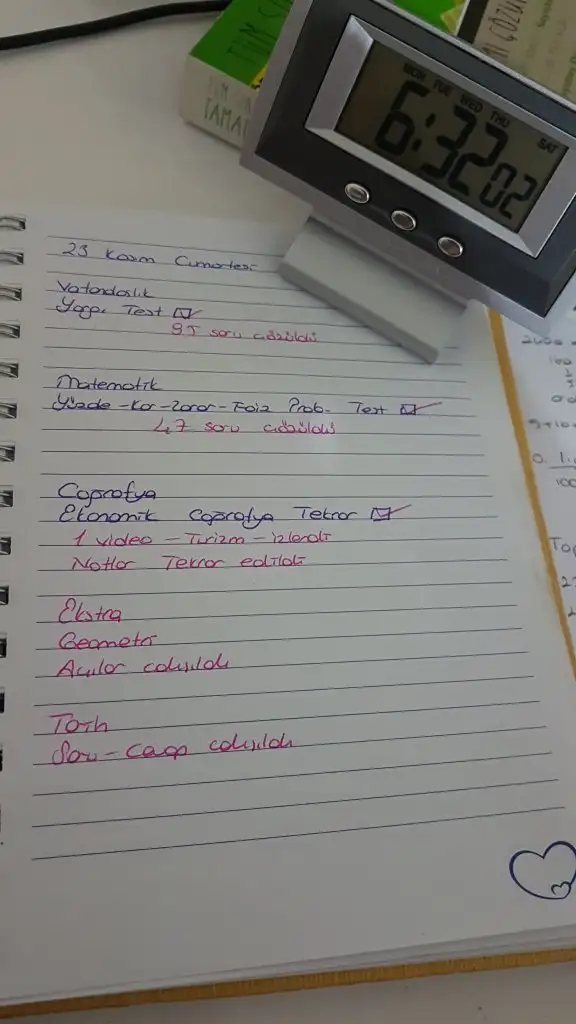 TÜM
TAMA
MON TUE WED THU SAT
6:32 02
23 Kasım Cumartesi
Vatandaşlık
Yargı Test
95 soru çözüldü
Matematik
Yüzde-Kar-Zarar-Faiz Prob. Test
47 soru çözüldü
Coğrafya
Ekonomik Coğrafya Tekrar
1 video - Turizm - izlendi
Notlar Tekrar edildi
Ekstra
Geometri
Açılar çalışıldı
Tarih
Soru-Cevap çalışıldı